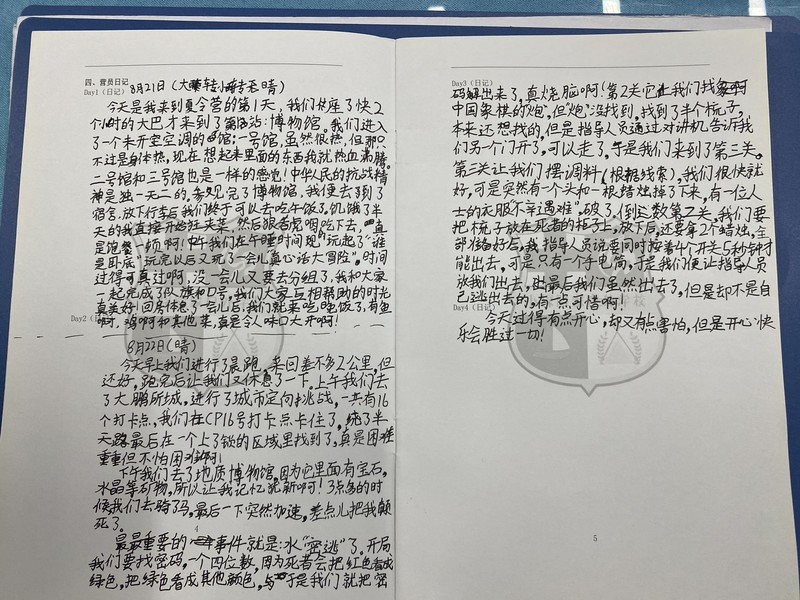 四、营员日记
Day1（日记）
8月21日（大暴转小转至晴）
今天是我来到夏令营的第1天，我们座了快2
个小时的大巴才来到了第1站：博物馆。我们进入
了一个未开空调的馆：一号馆，虽然很热，但那只
不过是身体热，现在想起来里面的东西我就热血沸腾。
二号馆和三号馆也是一样的感觉！中华人民的抗战精
神是独一无二的。参观完了博物馆，我便去到了
宿舍，放下行李后我们终于可以去吃午饭了，饥饿了半
天的我直接开始狂夹菜，然后狼吞虎咽吃下去，真
是饱餐一顿啊！中午我们在午睡时间玩起了“谁
是卧底”玩完以后又玩了一会儿真心话大冒险”。时间
过得可真过啊，没一会儿又要去分组了，我和大家
一起完成了队旗和口号，我们大家互相帮助的时光
真美好！回房休息了一会儿后，我们就来吃晚饭了，有鱼
啊，鸡啊和其他菜，真是令人味口大开啊！
Day2（日
8月22日（晴）
今天早上我们进行了晨跑，来回差不多2公里，但
还好，跑完后让我们又休息了一下。上午我们去
了大鹏所城，进行了城市定向挑战，一共有16
个打卡点，我们在CP16号打卡点卡住了，绕了半
天路最后在一个上了锁的区域里找到了，真是困难
重重但不怕困难啊！
下午我们去了地质博物馆，因为它里面有宝石，
水晶等矿物，所以让我记忆犹新啊！3点多的时
候我们去骑了马，最后一下突然加速，差点儿把我颠
死了。
4
最最重要的事件就是：水“密逃”了。开局
我们要找密码，一个四位数，因为死者会把红色看成
绿色，把绿色看成其他颜色，于是我们就把密
Day3（日记）
码解出来了，真烧脑啊！第2关它让我们找
中国象棋的“炮”。但“炮”没找到，找到了半个梳子，
本来还想找的，但是指导人员通过对讲机告诉我
们另一个门开了，可以走了，于是我们来到了第三关。
第三关让我们摆调料（根据线索），我们很快就
好，可是突然有一个头和一根蜡烛掉了下来，有一位人
士的衣服“不幸遇难”破了。倒数第2关，我们要
把梳子放在死者的柜子上，放下后，还要拿2个蜡烛，全
部准备好后，指导人员说要同时按着4个开关5秒钟才
能出去，可是只有一个手电筒，于是我们便让指导人员
放我们出去，最后我们虽然出去了，但是却不是自
己逃出去的，有一点可惜啊！
Day4（日记）
今天过得有点开心，却又有点害怕，但是开心快
乐会胜过一切！
5